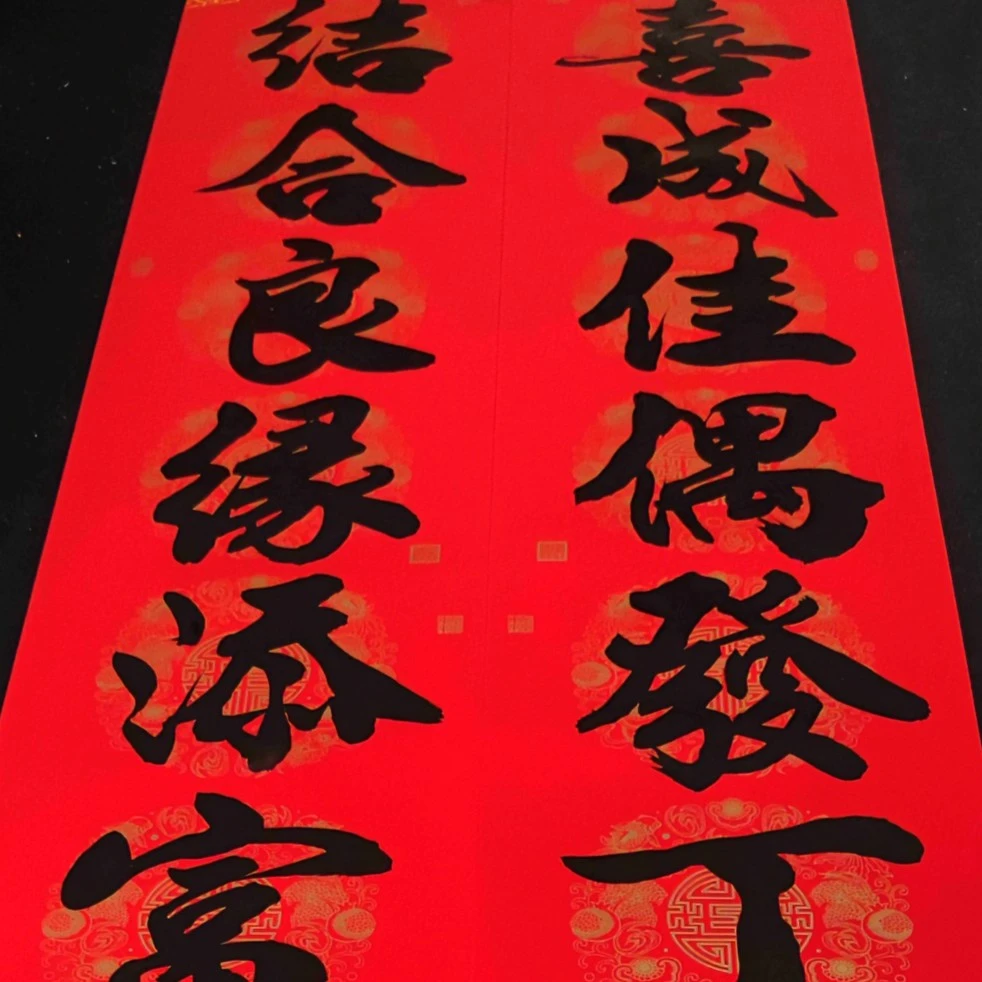 喜成佳偶發丁
結合良緣添富